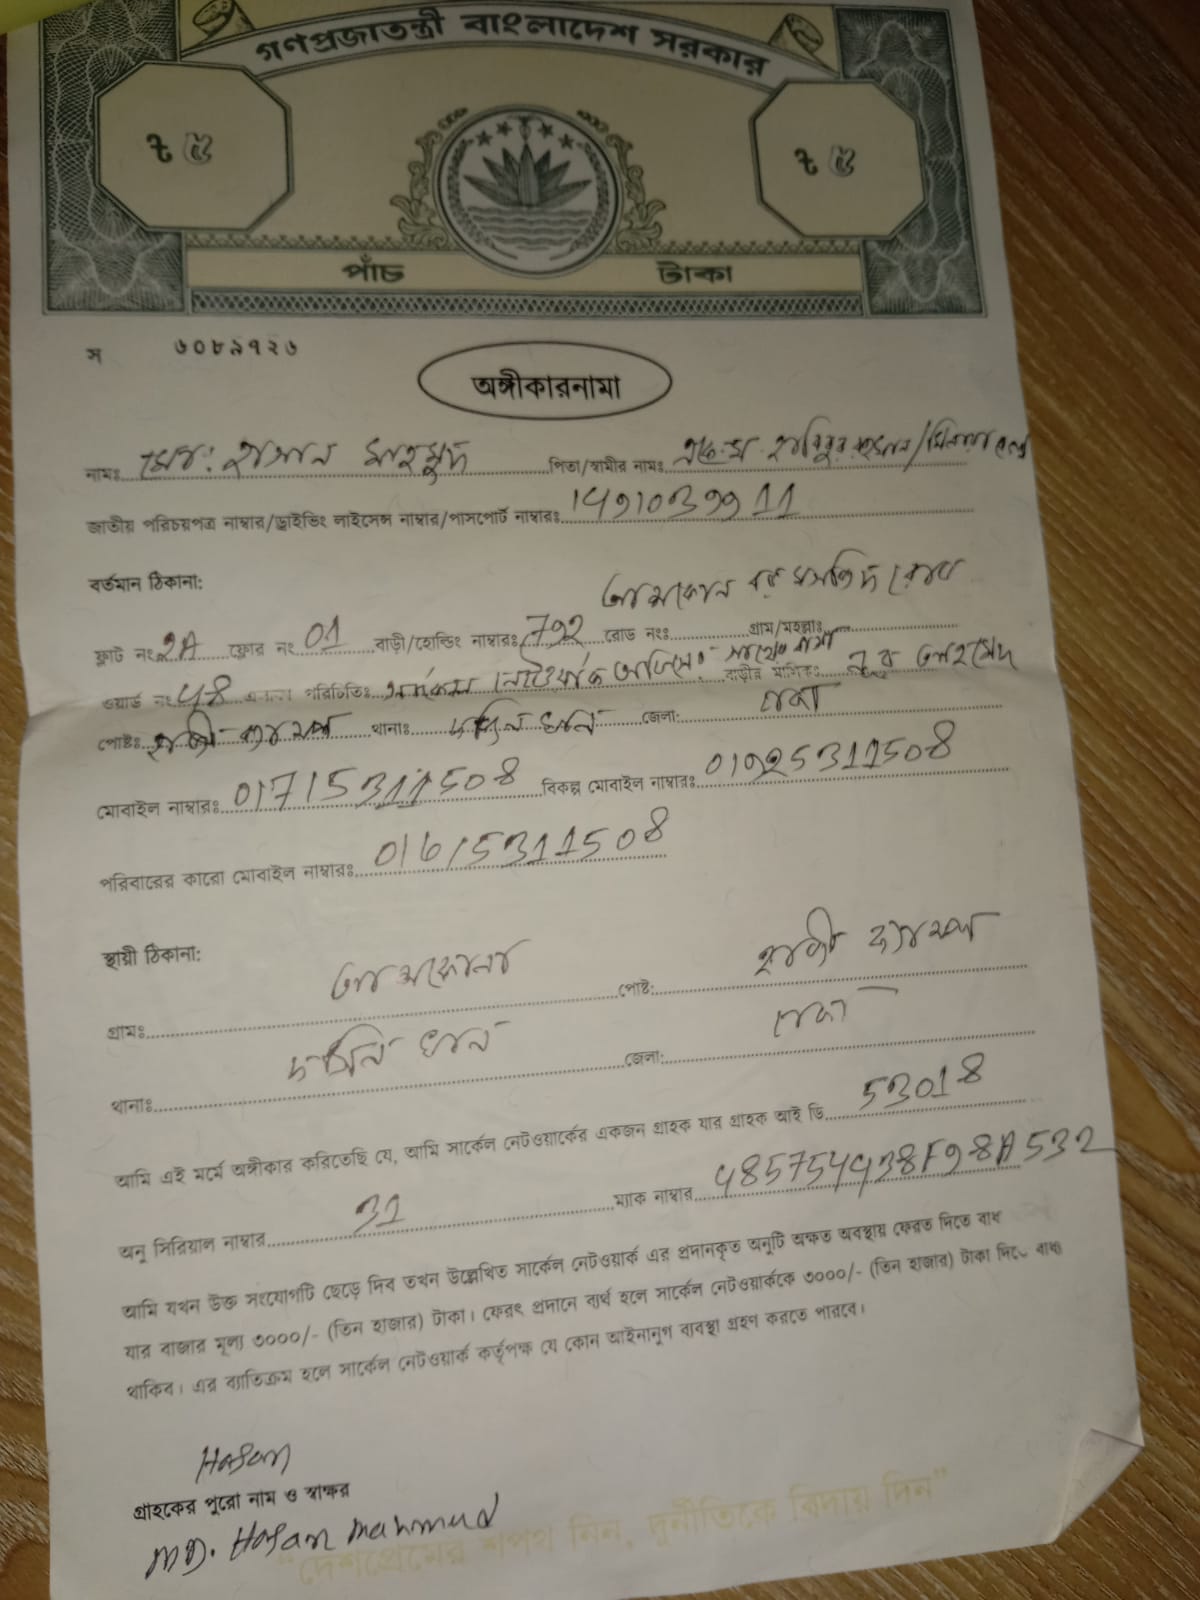 গণপ্রজাতন্ত্রী বাংলাদেশ সরকার
৳ ৫ ৳ ৫
পাঁচ টাকা
স ৬০৮৯৭২৬
অঙ্গীকারনামা
নামঃ মোঃ হাসান মাহমুদ পিতা/স্বামীর নামঃ
জাতীয় পরিচয়পত্র নাম্বার/ড্রাইভিং লাইসেন্স নাম্বার/পাসপোর্ট নাম্বারঃ
বর্তমান ঠিকানা:
ফ্লাট নং 2A ফ্লোর নং 01 বাড়ী/হোল্ডিং নাম্বারঃ 792 রোড নংঃ গ্রাম/মহল্লাঃ
ওয়ার্ড নং পরিচিতিঃ সার্কেল নেটওয়ার্ক অফিসের বাড়ীর মালিকঃ
পোষ্টঃ থানাঃ দক্ষিন খান জেলা: ঢাকা
মোবাইল নাম্বারঃ 01715311508 বিকল্প মোবাইল নাম্বারঃ 01925311508
পরিবারের কারো মোবাইল নাম্বারঃ 01615311508
স্থায়ী ঠিকানা:
গ্রামঃ পোষ্ট:
থানাঃ দক্ষিন খান জেলা: ঢাকা
আমি এই মর্মে অঙ্গীকার করিতেছি যে, আমি সার্কেল নেটওয়ার্কের একজন গ্রাহক যার গ্রাহক আই ডি 53018
অনু সিরিয়াল নাম্বার 31 ম্যাক নাম্বার
আমি যখন উক্ত সংযোগটি ছেড়ে দিব তখন উল্লেখিত সার্কেল নেটওয়ার্ক এর প্রদানকৃত অনুটি অক্ষত অবস্থায় ফেরত দিতে বাধ্য
যার বাজার মূল্য ৩০০০/- (তিন হাজার) টাকা। ফেরৎ প্রদানে ব্যর্থ হলে সার্কেল নেটওয়ার্ককে ৩০০০/- (তিন হাজার) টাকা দিতে বাধ্য
থাকিব। এর ব্যতিক্রম হলে সার্কেল নেটওয়ার্ক কর্তৃপক্ষ যে কোন আইনানুগ ব্যবস্থা গ্রহণ করতে পারবে।
Hasan
গ্রাহকের পুরো নাম ও স্বাক্ষর
MD. Hasan Mahmud
"দেশপ্রেমের শপথ নিন, দুর্নীতিকে বিদায় দিন"